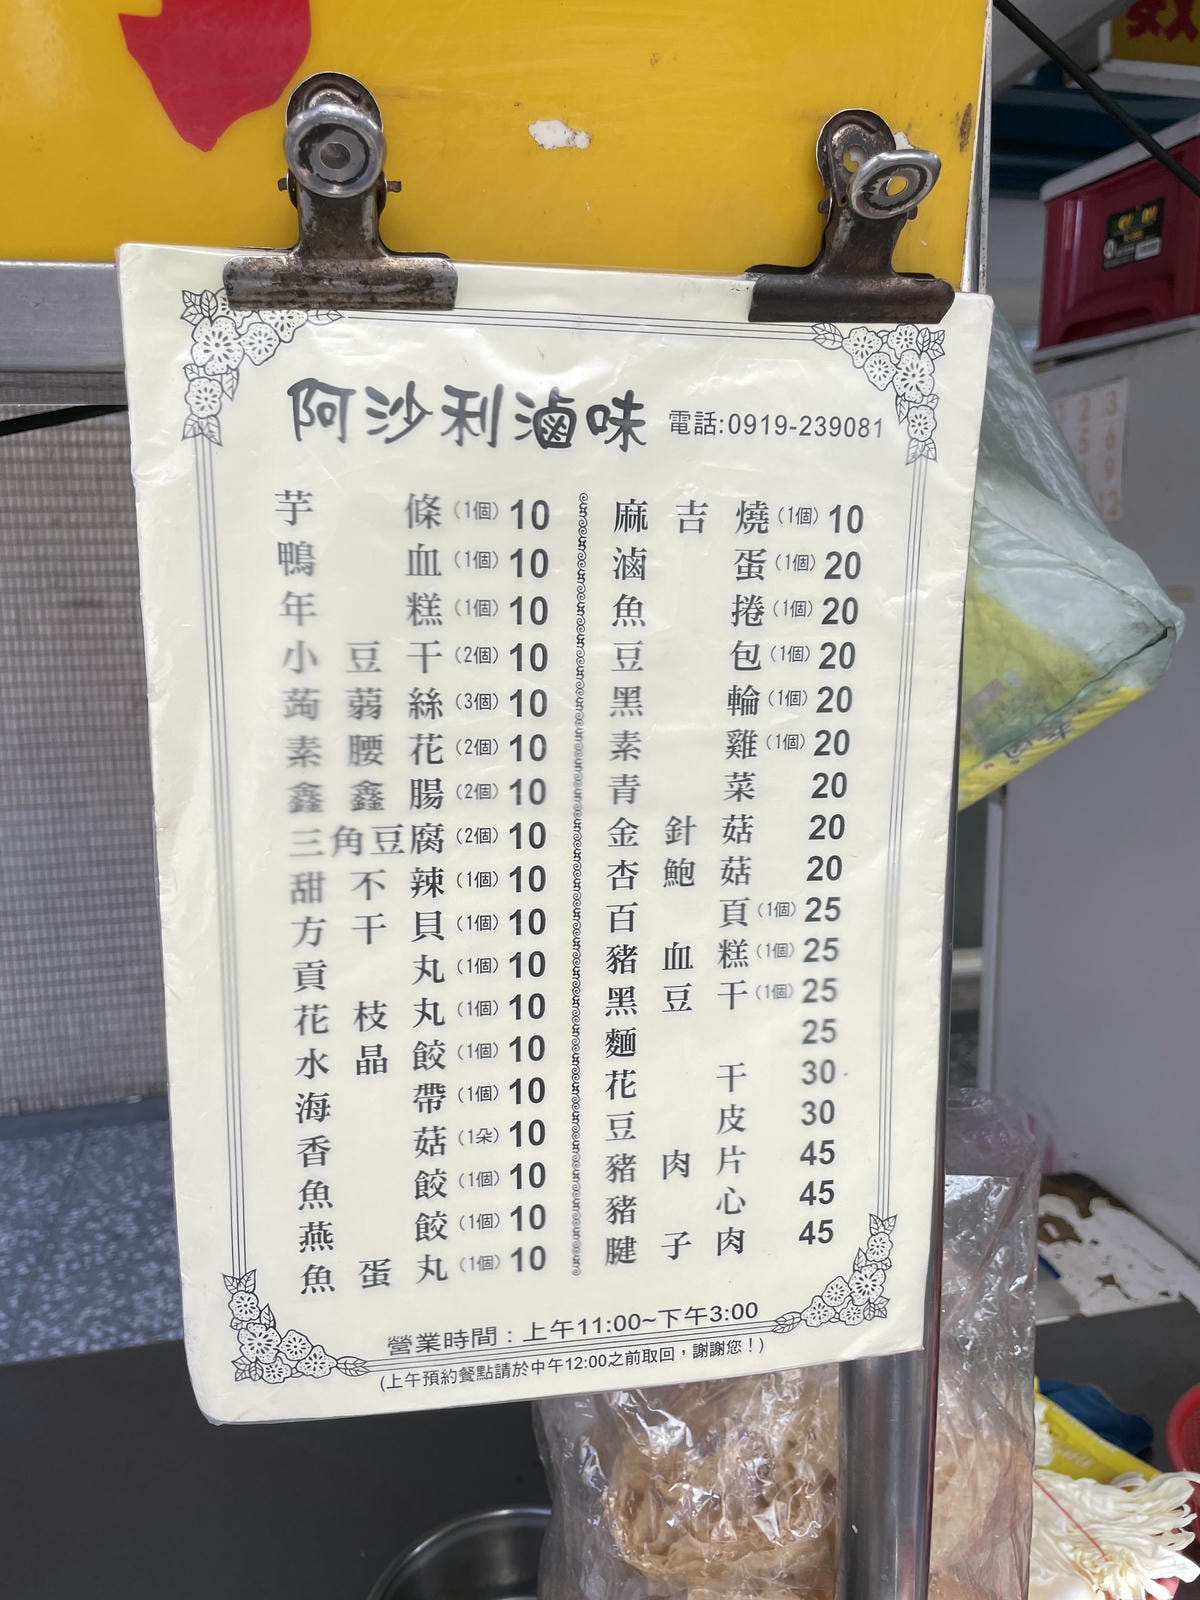 阿沙利滷味 電話:0919-239081
芋條(1個)10
鴨血(1個)10
年糕(1個)10
小豆干(2個)10
蒟蒻絲(3個)10
素腰花(2個)10
鑫鑫腸(2個)10
三角豆腐(2個)10
甜不辣(1個)10
方干貝(1個)10
貢丸(1個)10
花枝丸(1個)10
水晶餃(1個)10
海帶(1個)10
香菇(1朵)10
魚餃(1個)10
燕餃(1個)10
魚蛋丸(1個)10
麻吉燒(1個)10
滷蛋(1個)20
魚捲(1個)20
豆包(1個)20
黑輪(1個)20
素雞(1個)20
青菜 20
金針菇 20
杏鮑菇 20
百頁(1個)25
豬血糕(1個)25
黑豆干(1個)25
麵 25
花干 30
豆皮 30
豬肉片 45
豬心 45
腱子肉 45
營業時間:上午11:00~下午3:00
(上午預約餐點請於中午12:00之前取回,謝謝您!)